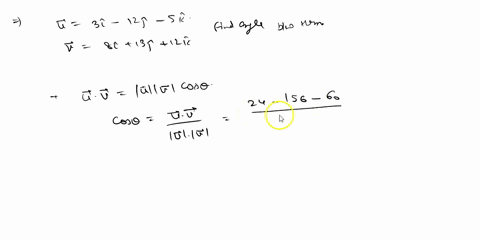 ⇒) u⃗ = 3î - 12ĵ - 5k̂ find angle btw them
v⃗ = 8î + 13ĵ + 12k̂
→ u⃗.v⃗ = |u⃗||v⃗| cosθ
cosθ = u⃗.v⃗ / |v⃗|.|v⃗| = 24 - 156 - 60